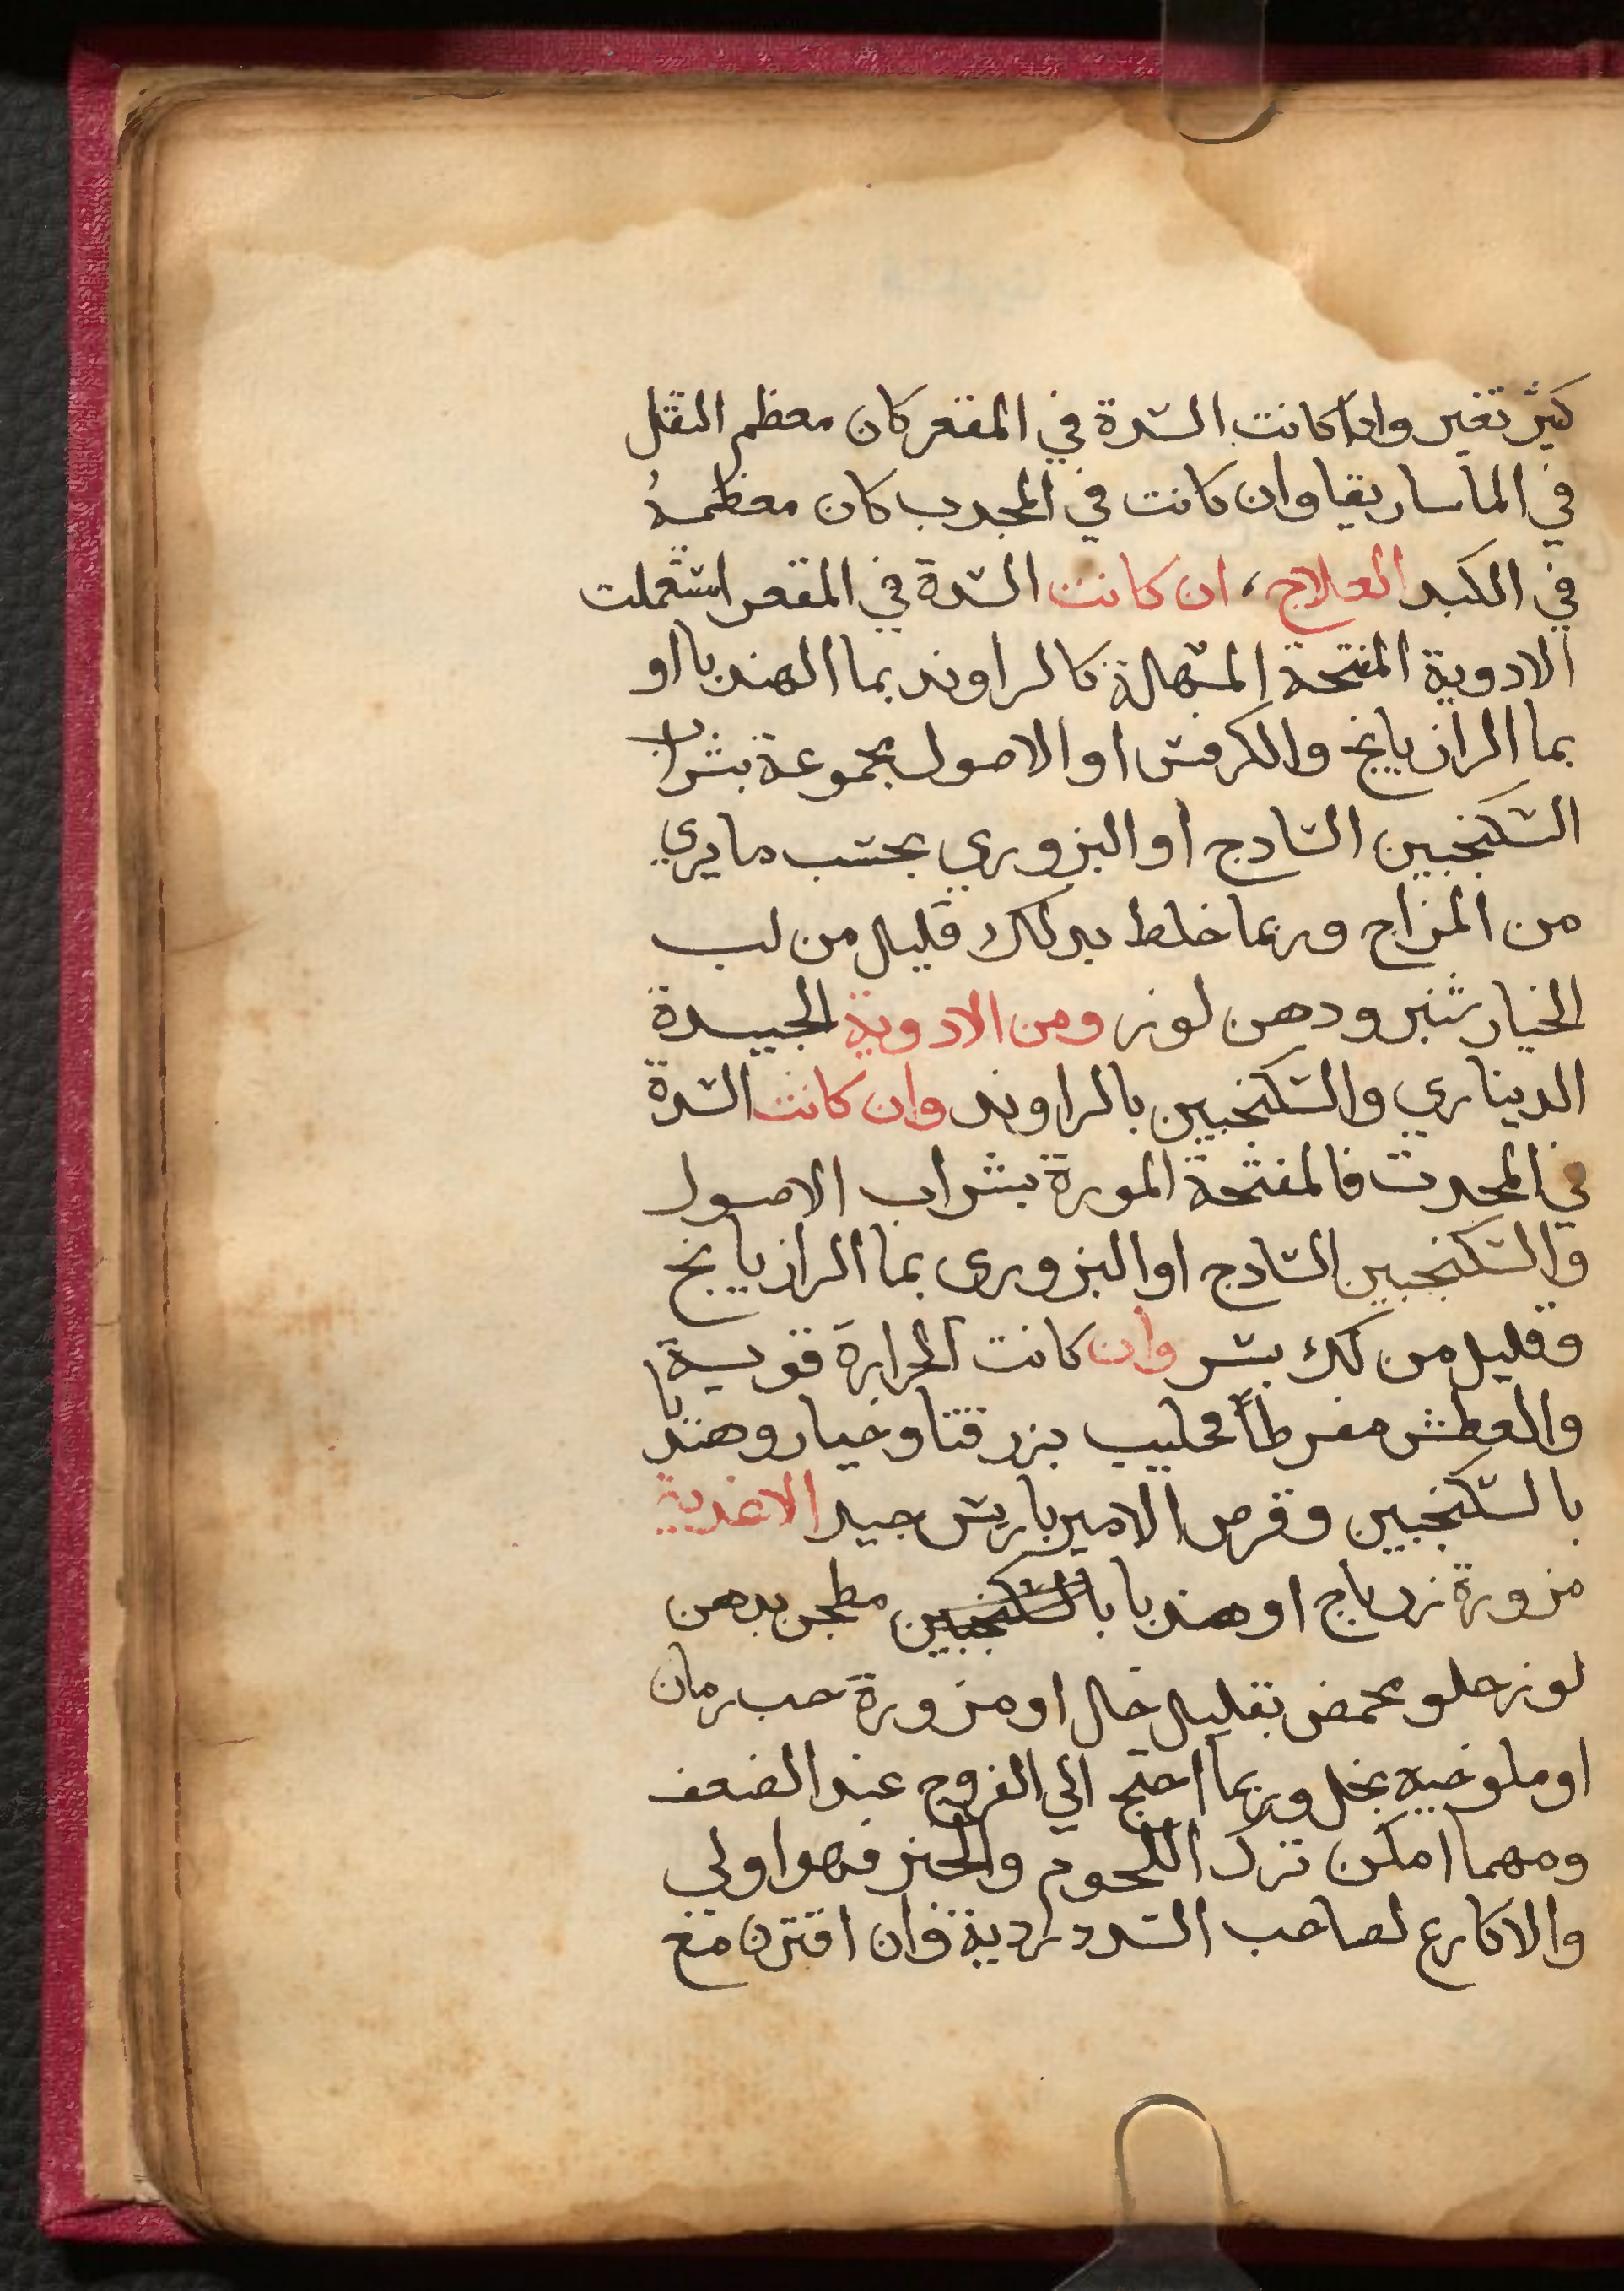 كثير تغير واذا كانت السدة في المقعر كان معظم الثقل
في الماساريقا وان كانت في المحدب كان معظمهُ
في الكبد العلاج، ان كانت السدة في المقعر استعملت
الادوية المفتحة المسهلة كالراوند بما الهندبا او
بما الرازيانج والكرفس او الاصول مجموعة بشراب
السكنجبين السادج او البزوري بحسب ما يري
من المزاج وربما خلط بدلك قليل من لب
الخيارشنبر ودهن لوز ومن الادوية الجيدة
الديناري والسكنجبين بالراوند وان كانت السدة
في المحدب فالمفتحة المدرة بشراب الاصول
والسكنجبين السادج او البزورى بما الرازيانج
وقليل من لك بسر وان كانت الحرارة قوية
والعطش مفرطاً فحليب بزر قتا وخيار وهندبا
بالسكنجبين وقرص الاميرباريس جيد الاغدية
مزورة زرباج او هندبا بالسكنجبين مطجن بدهن
لوز حلو محمض بقليل خل او مزورة حب رمان
او ملوخيه بخل وربما احتج الي الفروج عند الضعف
ومهما امكن ترك اللحوم والخبز فهو اولي
والاكارع لصاحب السدد ردية فان اقترن مع